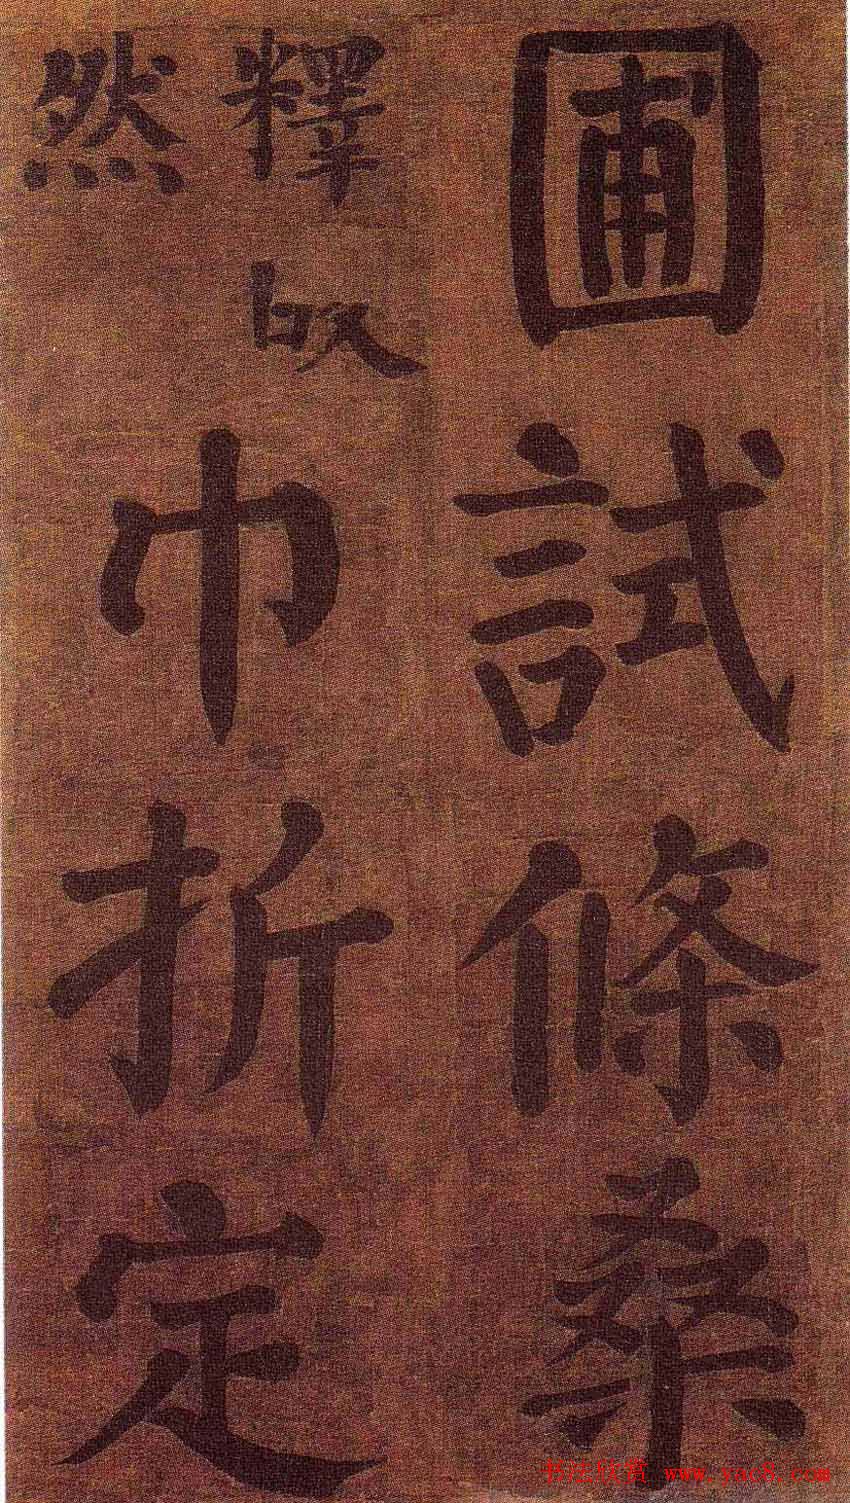 圃試條桑
釋
然
巾折定
书法欣赏 www.yac8.com